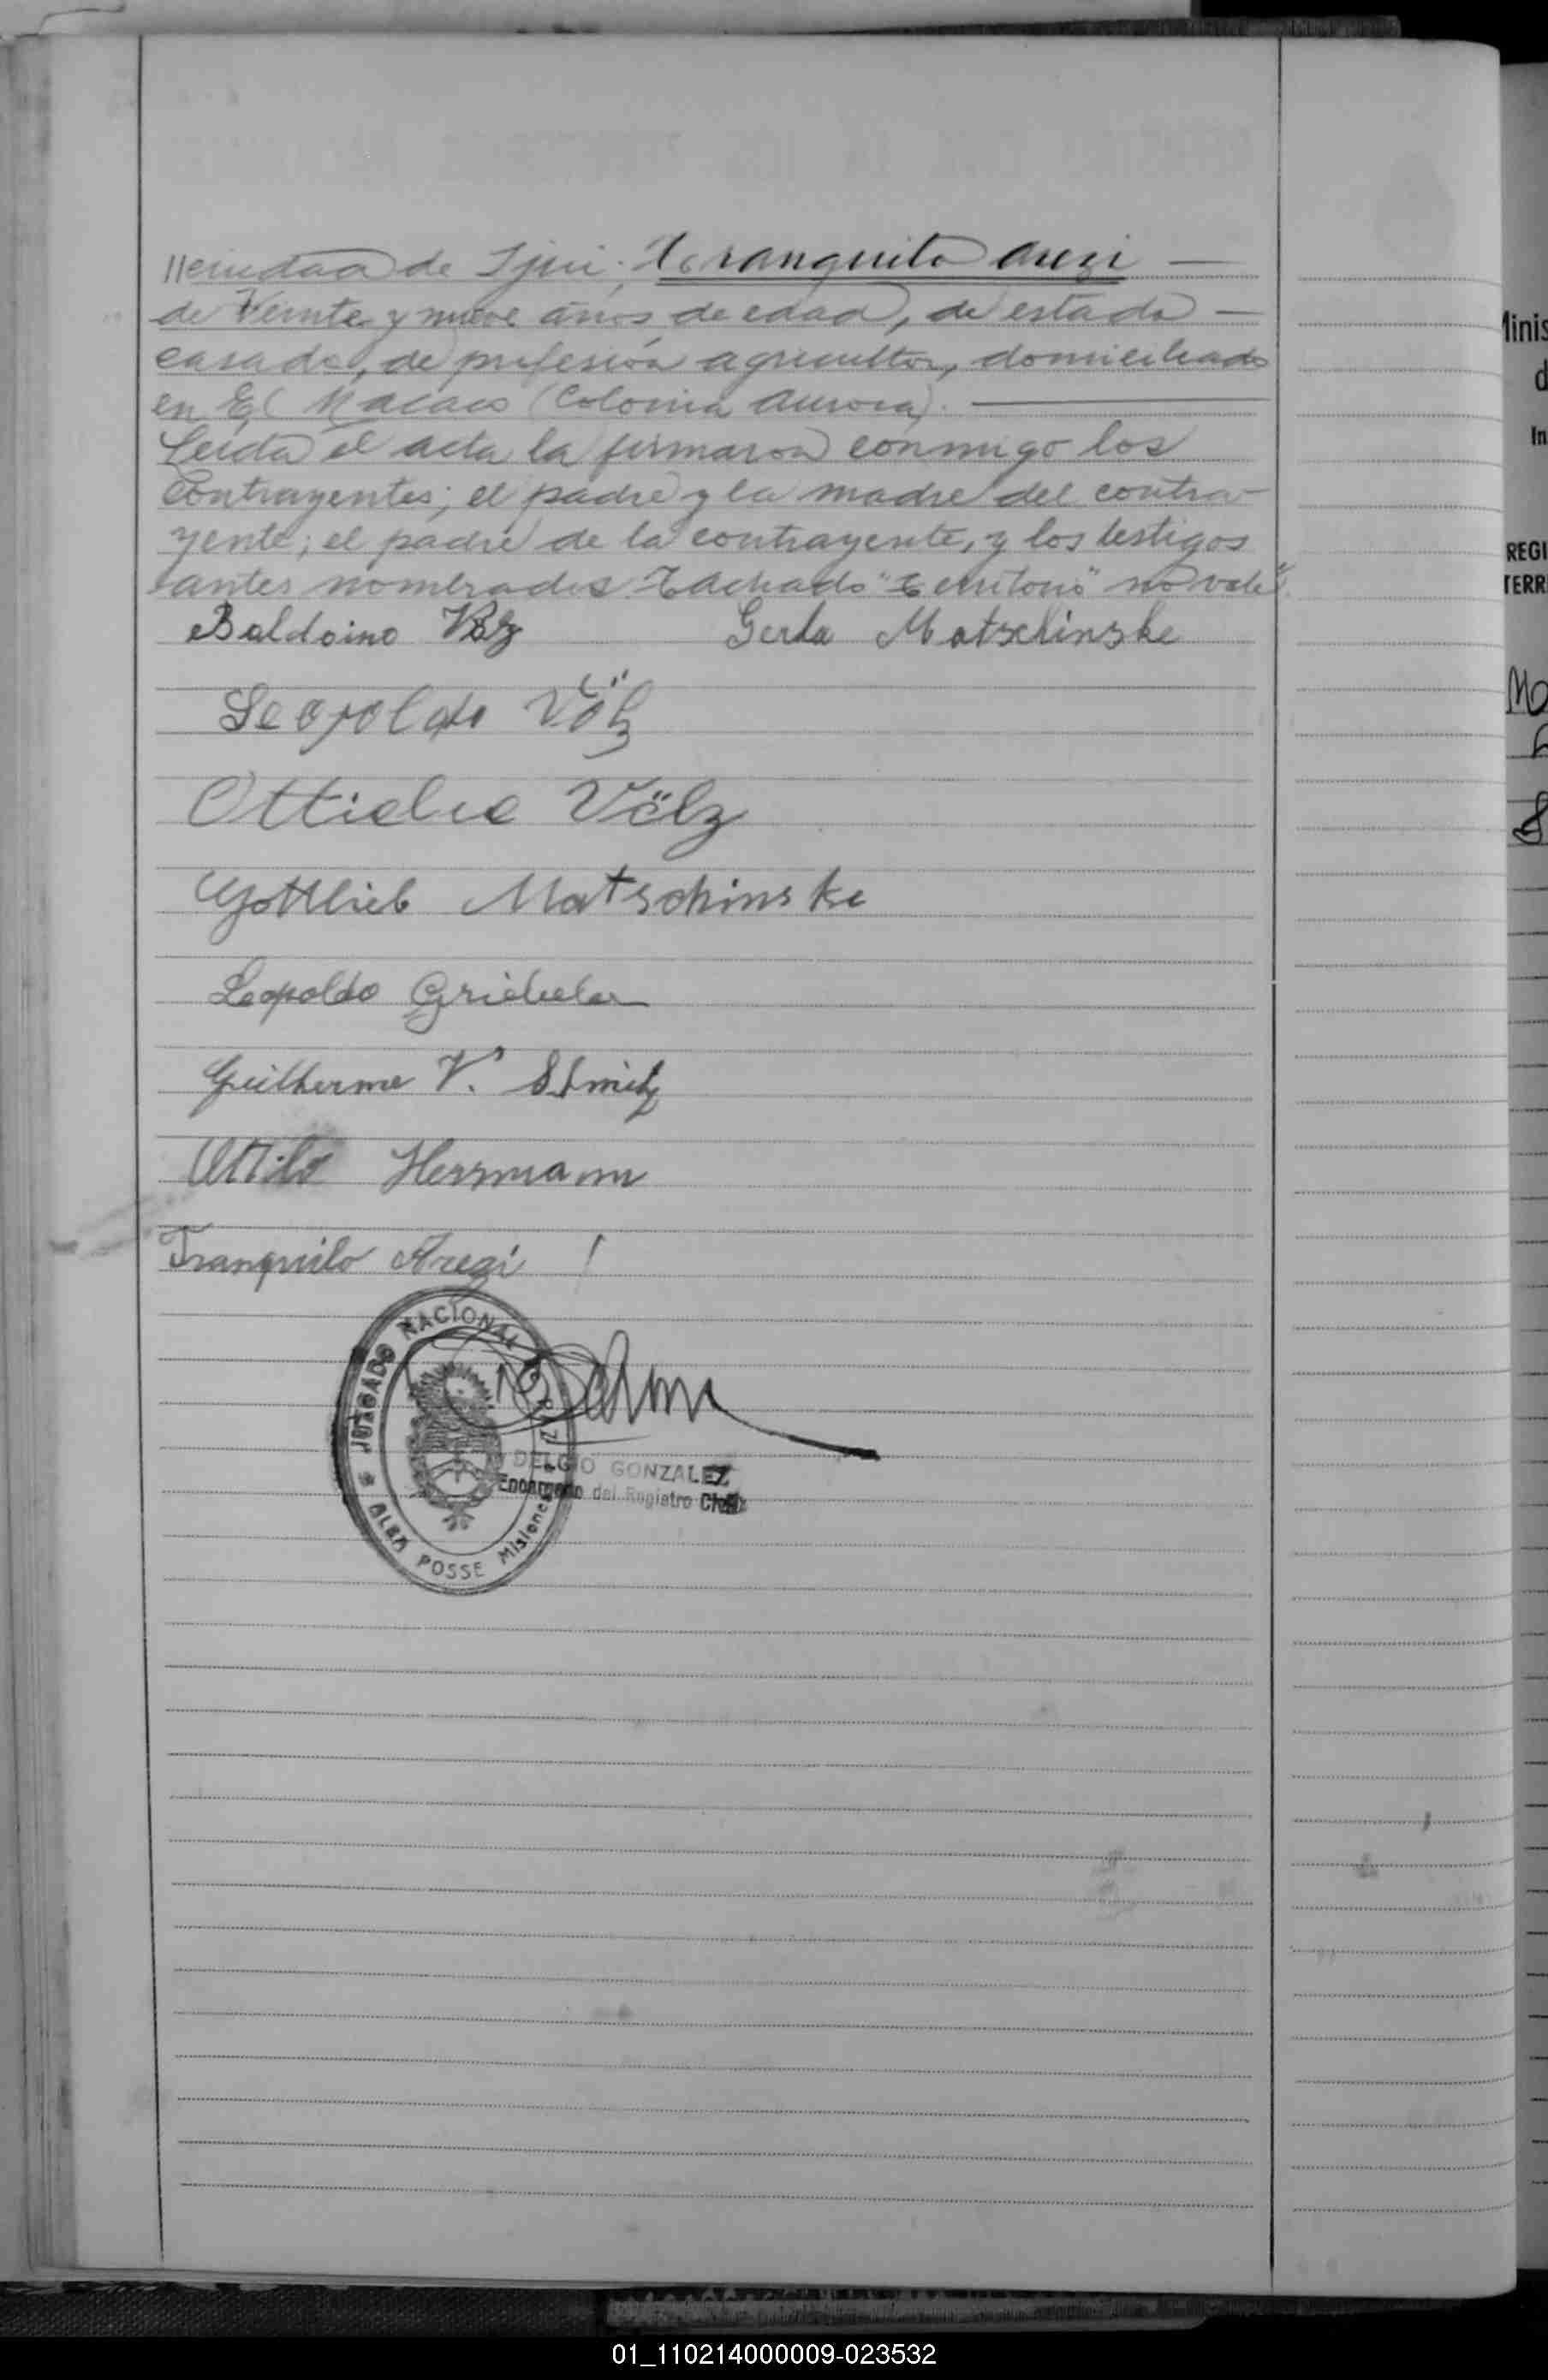 //ciudad de Ijui; Tranquilo Arezi —
de Veinte y nueve años de edad, de estado —
casado, de profesión agricultor, domiciliado
en El Macaco (Colonia Aurora). —
Leída el acta la firmaron conmigo los
contrayentes; el padre y la madre del contra-
yente; el padre de la contrayente, y los testigos
antes nombrados. Tachado "Territorio" no vale".
Baldoino Völz Gerda Matschinske
Leopoldo Völz
Ottielie Völz
Gottlieb Matschinske
Leopoldo Griebeler
Guilherme V. Shmitz
Attilo Herrmann
Tranquilo Arezi
JUZGADO NACIONAL DE PAZ
ALBA POSSE Misiones
DELCIO GONZALEZ
Encargado del Registro Civil
Minis
d
In
REGI
TERR
01_110214000009-023532